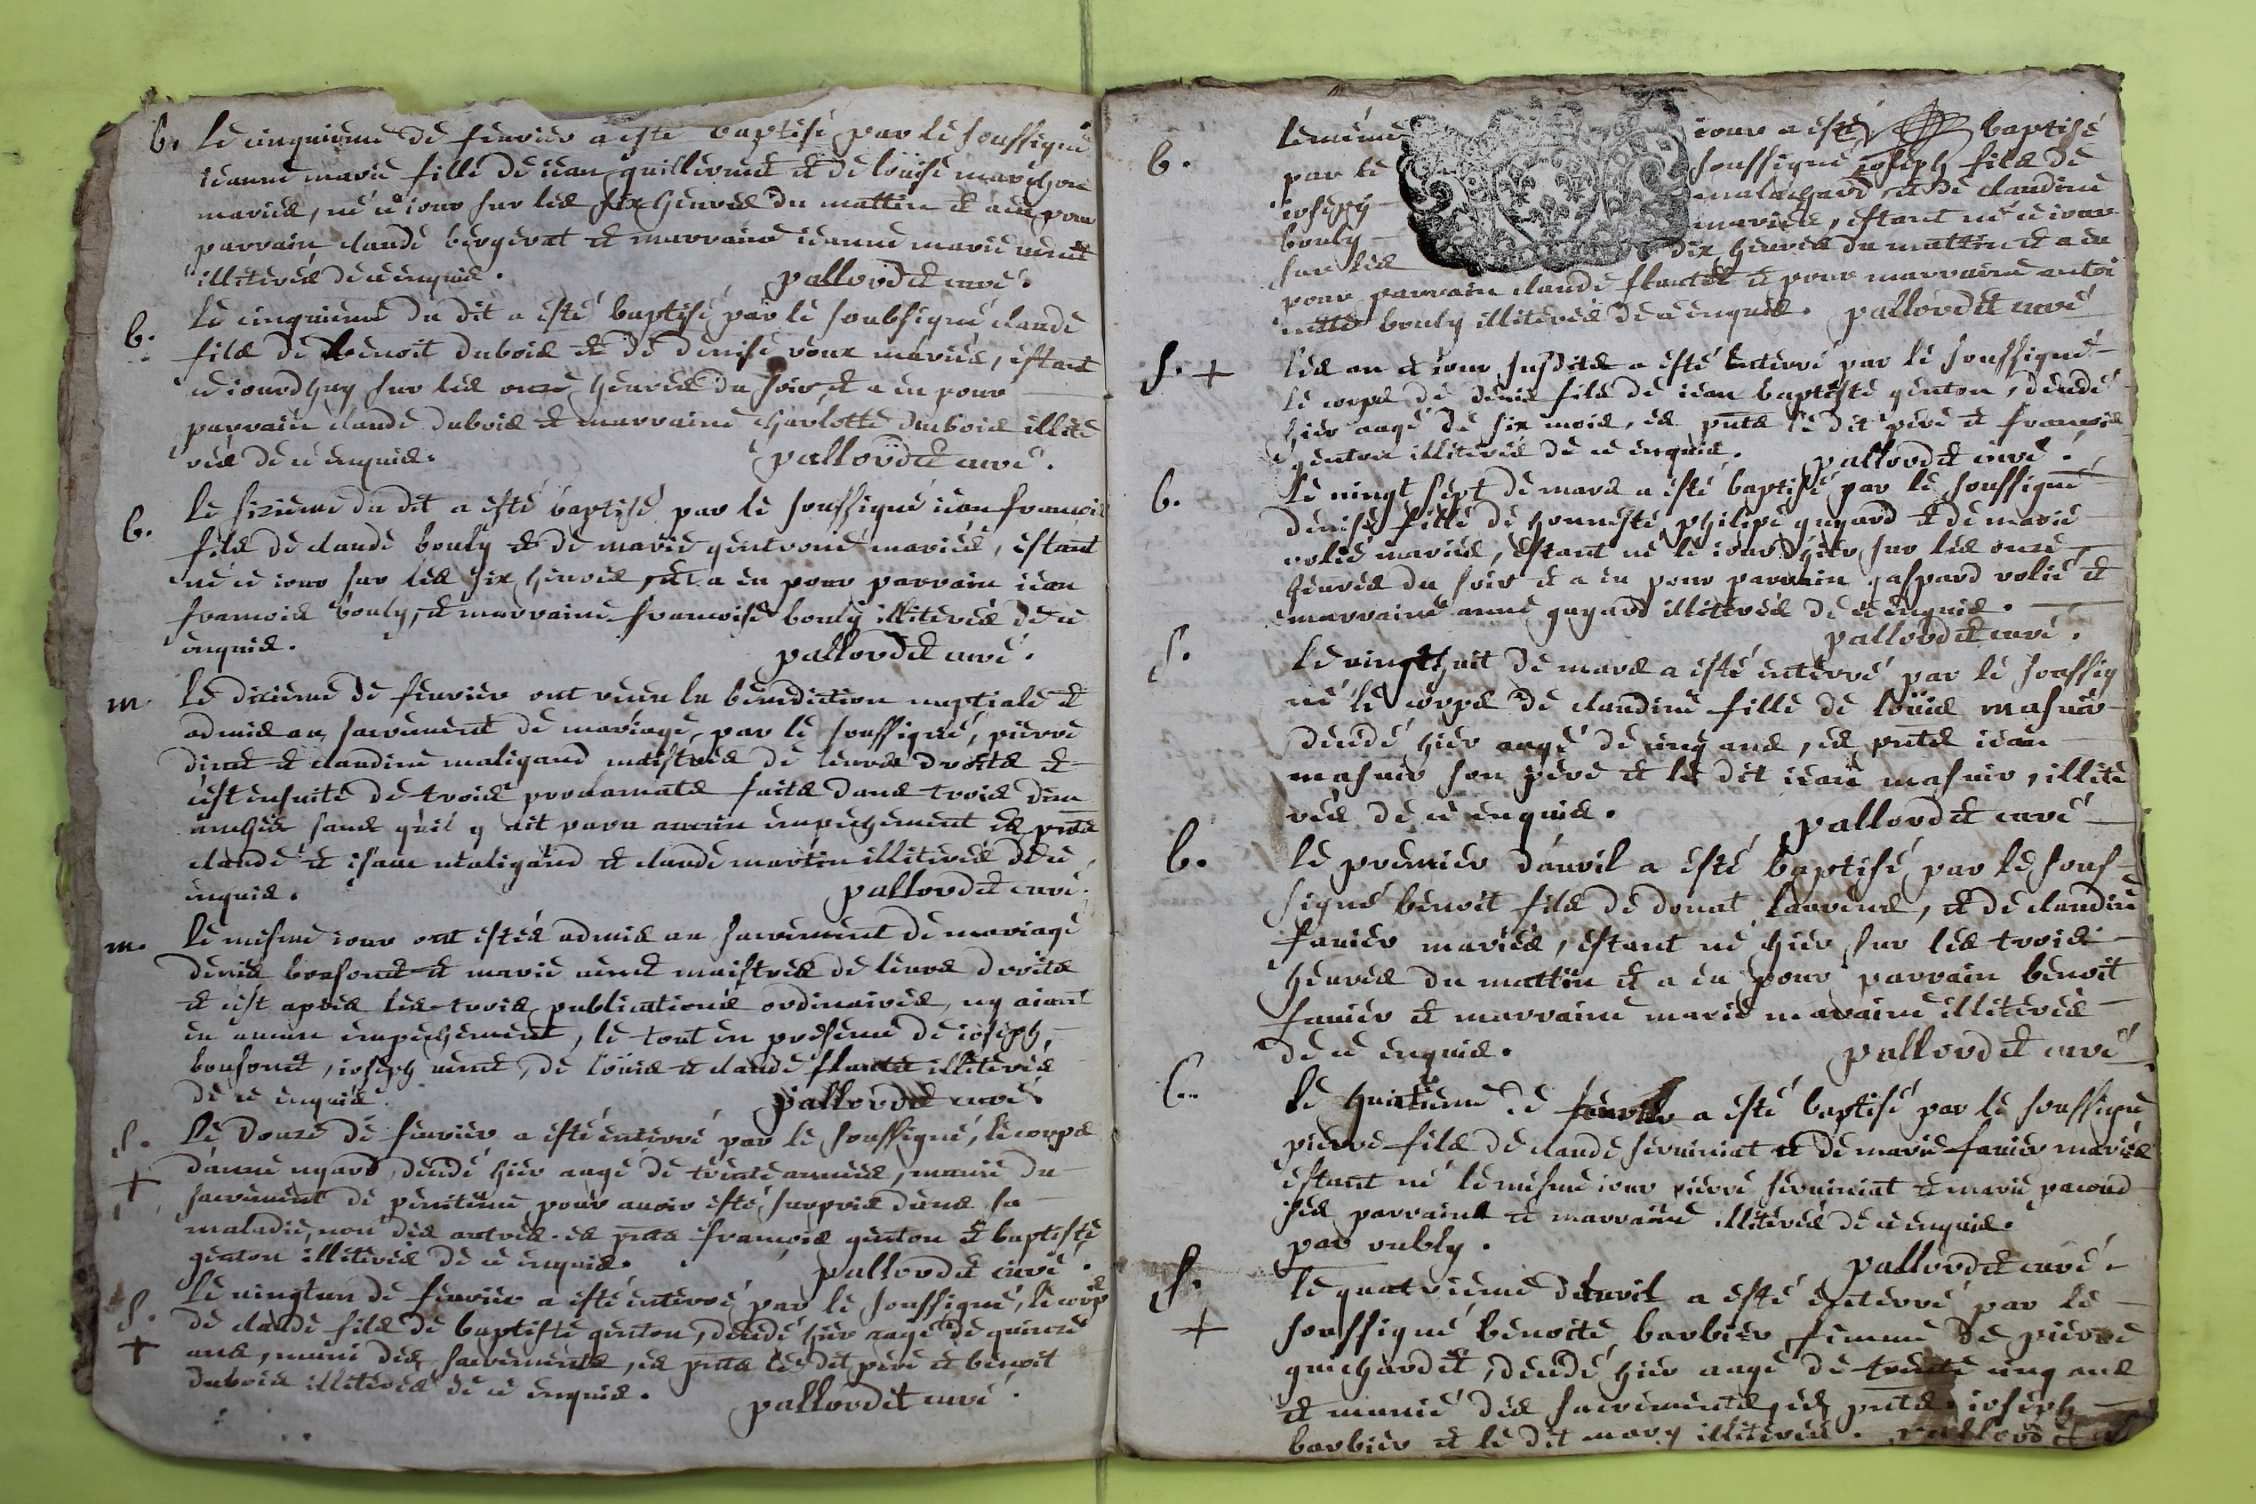 b. le cinquieme de feuvier a esté baptisé par le soussigné
ieanne marie fille de iean guillermet et de loüise marichon
mariés, né ce iour sur les six heures du mattin et a eu pour
parrain claude bergerat et marraine ieanne marie
illiterés de ce enquis. pallordet curé.
b. le cinquieme du dit a esté baptisé par le soubsigné claude
fils de benoit dubois et de denise roux mariés, estant
ce iourdhuy sur les onze heures du soir, et a eu pour
parrain claude dubois et marraine charlotte dubois illite
rés de ce enquis. pallordet curé.
b. le sixieme du dit a esté baptisé par le soussigné iean francois
fils de claude bouly et de marie gentrone mariés, estant
né ce iour sur les six heures, et a eu pour parrain iean
francois bouly, et marraine francoise bouly illiterés de ce
enquis. pallordet curé.
m. le dixieme de feuvier ont receu la benediction nuptiale et
admis au sacrement de mariage, par le soussigné, pierre
et claudine maligand maistres de leurs droits et
cest ensuite de trois proclamats faits dans trois dim
anches sans quil y ait paru aucun empechement es pnts
claude et isaac maligand et claude martin illiterés de ce
enquis. pallordet curé.
m. le mesme iour ont estés admis au sacrement de mariage
denis bonsonet et marie maistres de leurs droits
et cest apres les trois publications ordinaires, ny aiant
eu aucun empechement, le tout en presence de ioseph
bonsonet, ioseph de loüis et claude flautet illiterés
de ce enquis pallordet curé
s. le douze de feuvier a esté enterré par le soussigné, le corps
+ danne ugard, decedé hier aagé de trente années, munie du
sacrement de penitence pour avoir esté surprise dans sa
maladie, non des autres. es pnts francois genton et baptiste
genton illiterés de ce enquis. pallordet curé.
s. le vingtun de feuvier a esté enterré par le soussigné, le corps
+ de claude fils de baptiste genton, decedé hier aagé de quinze
ans, muni des sacrements, es pnts le dit pere et benoit
dubois illiterés de ce enquis. pallordet curé.
b. lemême iour a esté baptisé
par le soussigné ioseph fils de
ioseph malachard et de claudine
bouly mariés, estant né ce iour
sur les dix heures du mattin et a eu
pour parrain claude flautet et pour marraine antoi
nette bouly illiterés de ce enquis. pallordet curé
s. + les an et iour susdits a esté enterré par le soussigné
le corps de denis fils de iean baptiste genton, decedé
hier aagé de six mois, es pnts le dit pere et francois
genton illiterés de ce enquis. pallordet curé.
b. le vingt sept de mars a esté baptisé par le soussigné
denise fille de honneste philipe guyard et de marie
rolié mariés, estant né le iour dhier sur les onze
heures du soir et a eu pour parrain gaspard rolié et
marraine anne guyard illiterés de ce enquis.
pallordet curé.
s. le vingthuit de mars a esté enterré par le soussig
né le corps de claudine fille de loüis masuir
decedé hier aagé de cinq ans, es pnts iean
masuir son pere et le dit iean masuir, illite
rés de ce enquis. pallordet curé
b. le premier dauril a esté baptisé par le sous
signé benoit fils de donat laurens, et de claudine
fanier mariés, estant né hier sur les trois
heures du mattin et a eu pour parrain benoit
fanier et marraine marie maraine illiterés
de ce enquis. pallordet curé
b. le huitieme de a esté baptisé par le soussigné
pierre fils de claude seruiniat et de marie fanier mariés
estant né le mesme iour pierre seruiniat et marie pacoud
ses parrains et marraine illiterés de ce enquis.
par oubly. pallordet curé.
s. le quatrieme dauril a esté enterré par le
+ soussigné benoite barbier femme de pierre
guichardet, decedé hier aagé de trente cinq ans
et munié des sacrements, es pnts ioseph
barbier et le dit mary illiterés. pallordet